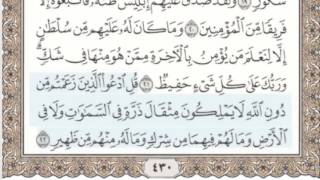 شَكُورٍ ﴿١٩﴾ وَلَقَدْ صَدَّقَ عَلَيْهِمْ إِبْلِيسُ ظَنَّهُۥ فَٱتَّبَعُوهُ إِلَّا
فَرِيقًا مِّنَ ٱلْمُؤْمِنِينَ ﴿٢٠﴾ وَمَا كَانَ لَهُۥ عَلَيْهِم مِّن سُلْطَٰنٍ
إِلَّا لِنَعْلَمَ مَن يُؤْمِنُ بِٱلْءَاخِرَةِ مِمَّنْ هُوَ مِنْهَا فِى شَكٍّ
وَرَبُّكَ عَلَىٰ كُلِّ شَىْءٍ حَفِيظٌ ﴿٢١﴾ قُلِ ٱدْعُوا۟ ٱلَّذِينَ زَعَمْتُم مِّن
دُونِ ٱللَّهِ لَا يَمْلِكُونَ مِثْقَالَ ذَرَّةٍ فِى ٱلسَّمَٰوَٰتِ وَلَا فِى
ٱلْأَرْضِ وَمَا لَهُمْ فِيهِمَا مِن شِرْكٍ وَمَا لَهُۥ مِنْهُم مِّن ظَهِيرٍ ﴿٢٢﴾
٤٣٠